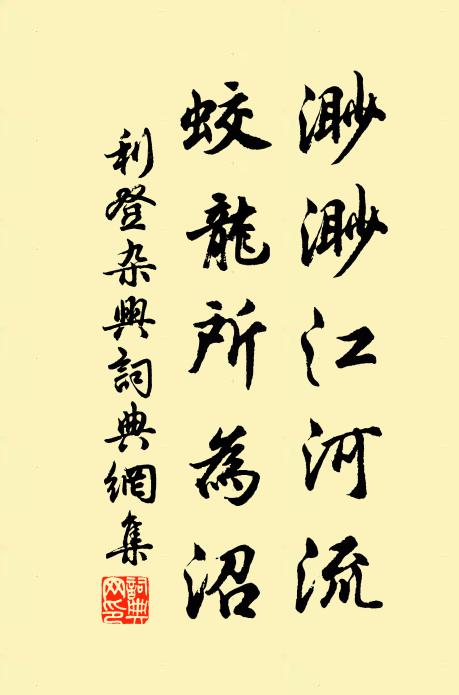 渺渺江河流
蛟龍所為沼
利登杂興詞典網集
詞典網印